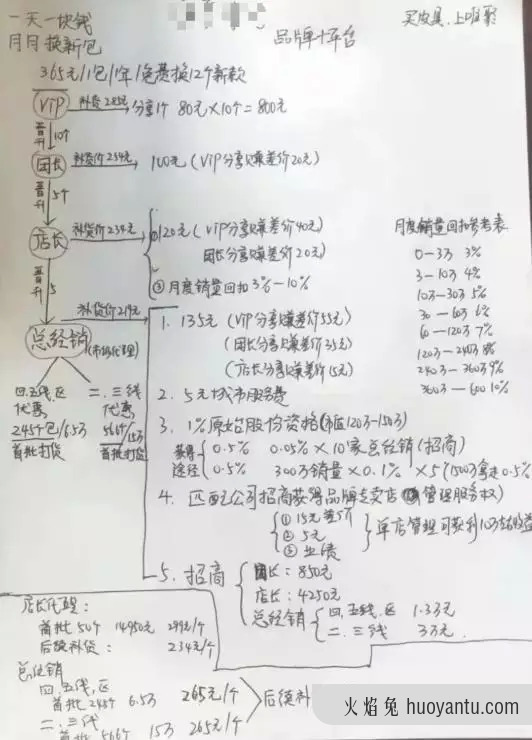 一天一块钱
月月换新包
品牌+平台
买皮具,上唯聚
365元/1包/年/免费换12个新款
VIP 补货285元 分享1个 80元×10个=800元
晋升 10个
团长 补货价254元 100元(VIP分享赚差价20元)
晋升 5个
店长 补货价234元 ①120元(VIP分享赚差价40元)
团长分享赚差价20元)
②月度销量回扣3%-10%
晋升 5
总经销(市级代理) 补货价219元
1. 135元(VIP分享赚差价55元)
(团长分享赚差价35元)
(店长分享赚差价15元)
2. 5元城市服务费
3. 1%原始股份资格(市区120万-150万)
获得途径 0.5% 0.05%×10家总经销(招商)
0.5% 300万销量×0.1% ×5(1500万拿走0.5%
4. 匹配公司招商获得品牌专卖店(管理服务权)
①15元差价
②5元
③业绩
单店管理可获利10万左右收益
5. 招商
团长:850元
店长:4250元
总经销 四.五线.区 1.3万元
二.三线 3万元.
月度销量回扣参考表
0-3万 3%
3-10万 4%
10万-30万 5%
30-60万 6%
60-120万 7%
120万-240万 8%
240万-360万 9%
360万-600 10%
四.五线.区
优惠
245个包/6.5万
首批打货
二.三线
优惠
566个/15万
首批打货
店长代理:
首批50个 14950元 299元/个
后续补货: 234元/个
总经销
四.五线.区
首批245个 6.5万 265元/个
二.三线
首批566个 15万 265元/个
后续补
火焰兔 huoyantu.com